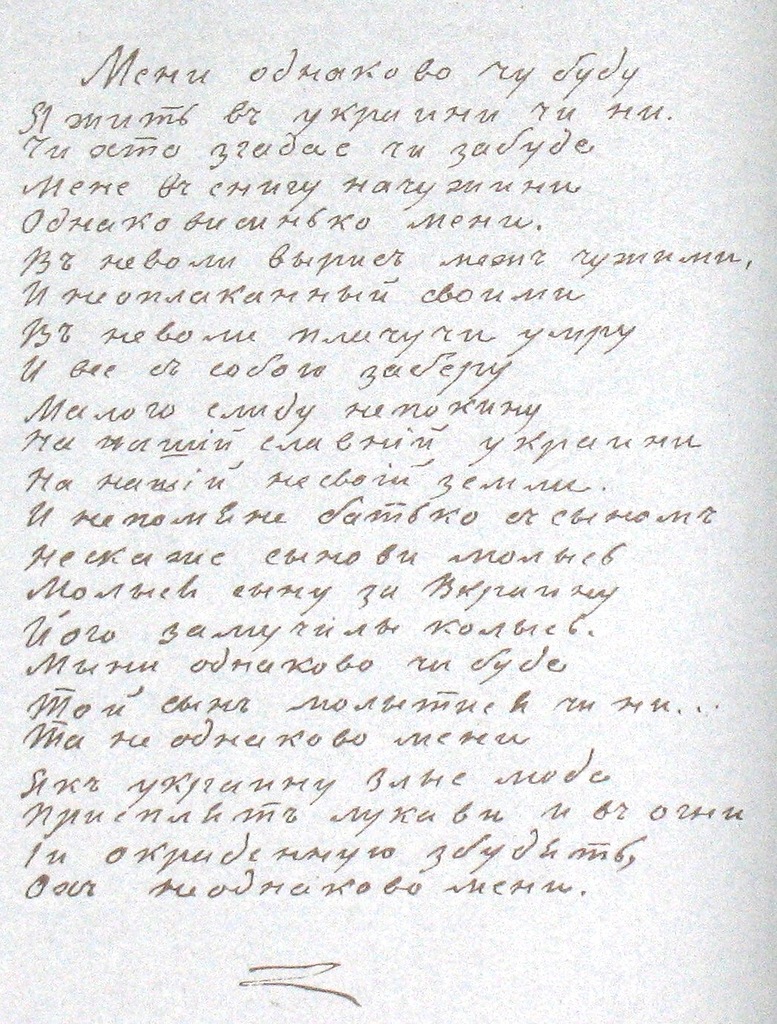 Мени однаково чу буду
Я жить въ украини чи ни.
Чи хто згадае чи забуде
Мене въ снигу начужини
Однаковисинько мени.
Въ неволи вырисъ межъ чужими,
И неоплаканный своими
Въ неволи плачучи умру
И все съ собою заберу
Малого слиду непокину
На нашій славній украини
На нашій несвоій земли.
И непомъяне батько съ сыномъ
Нескаже сынови молысь
Молысь сыну за Вкраину
Його замучили колысь.
Мыни однаково чи буде
Той сынъ молытися чи ни...
Та не однаково мени
Якъ украину злые люде
Присплятъ лукави и въ огни
Іи окраденную збудять,
Охъ неоднаково мени.